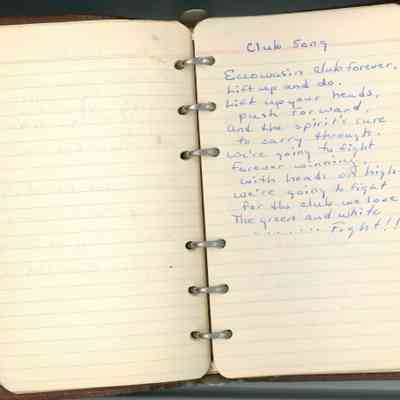 Club Song
Eccowasin Club forever,
Lift up and do.
Lift up your heads,
push forward,
and the spirit's sure
to carry through.
We're going to fight
forever winning,
with heads on high.
we're going to fight
for the club we love
The green and white
........ Fight!!